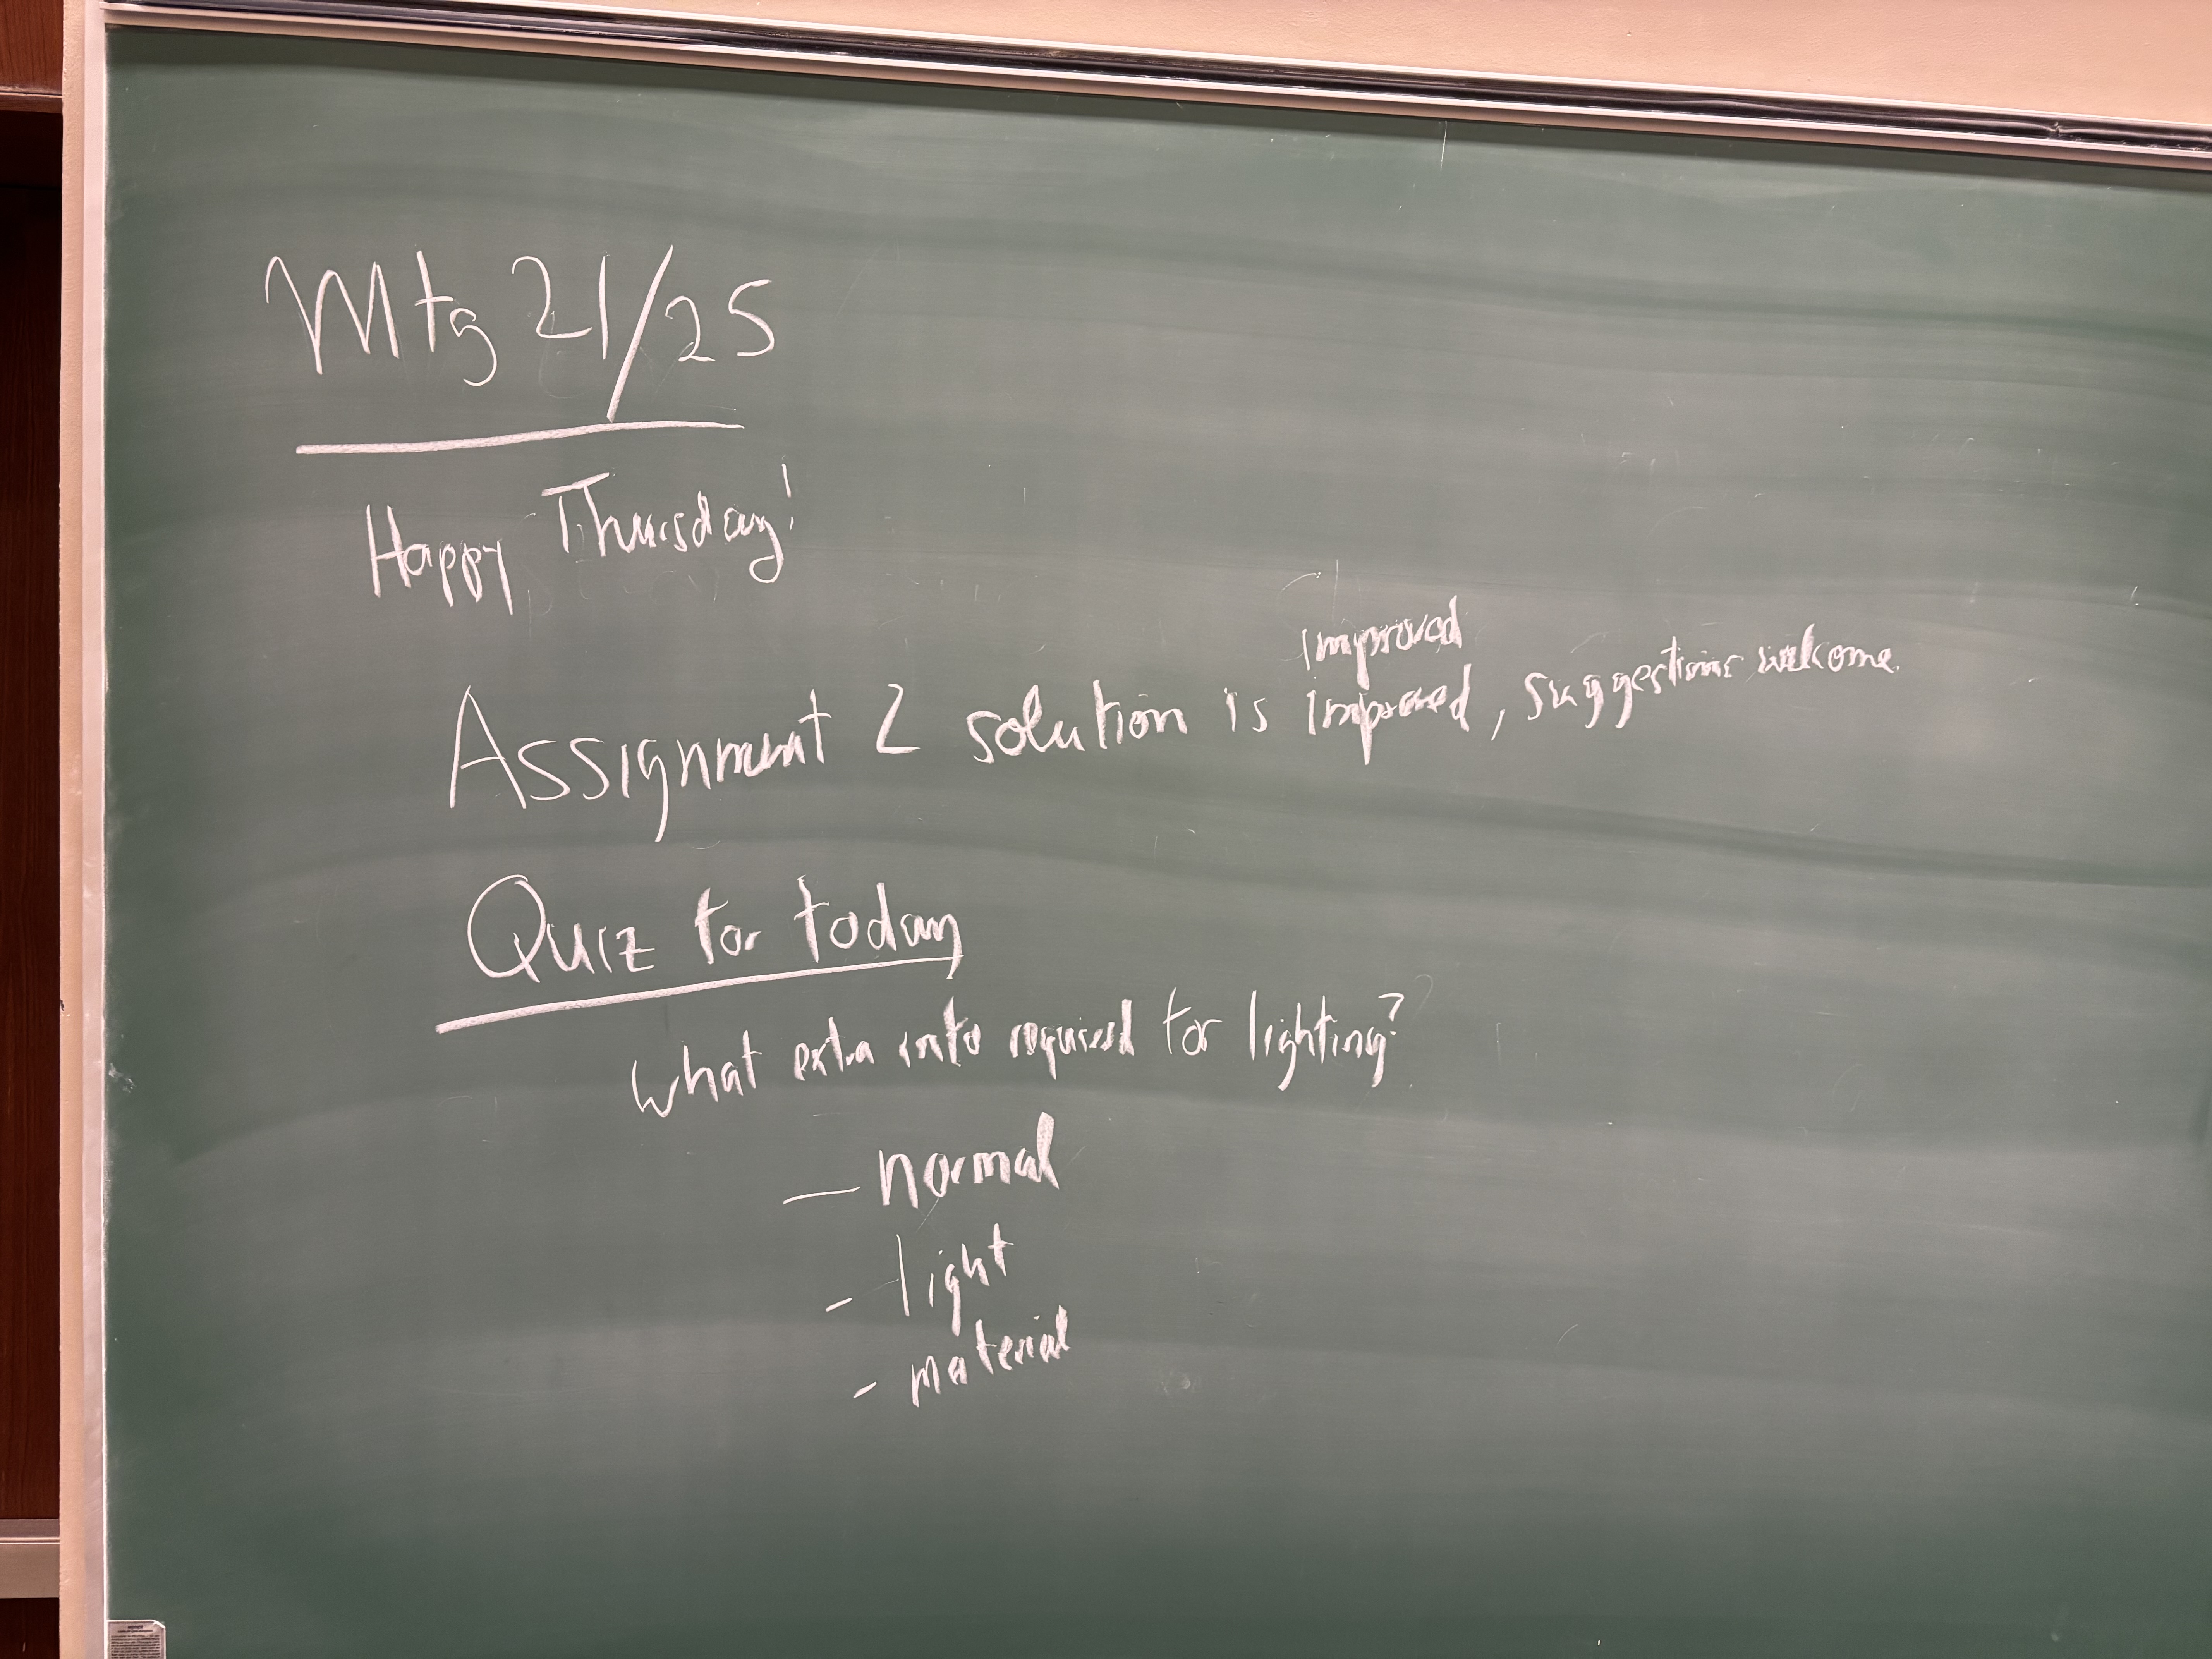 Mtg 21/25
Happy Thursday!
Improved
Assignment 2 solution is improved, suggestions welcome.
Quiz for today
What extra info required for lighting?
- normal
- light
- material